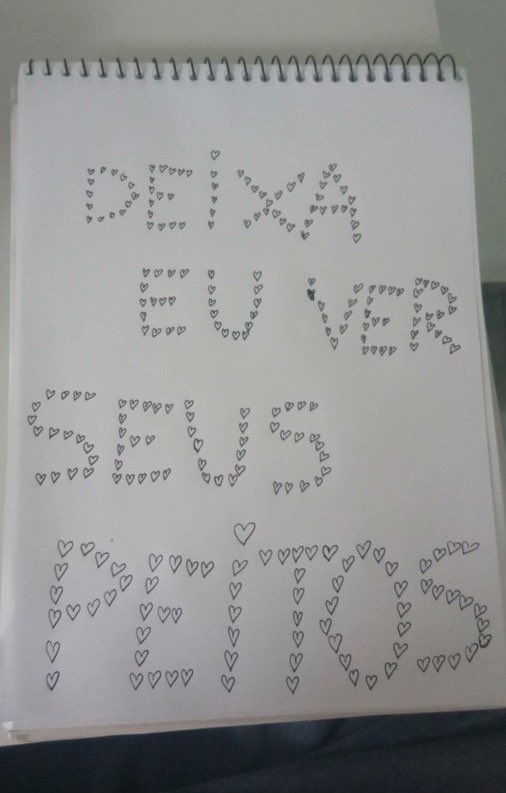 DEiXA
EU VER
SEUS
PEiTOS